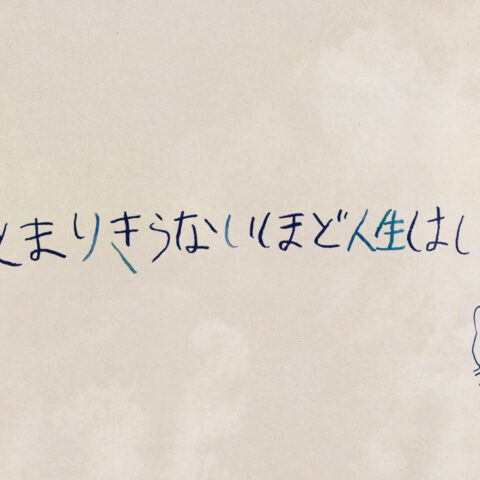 まりきらないほど人生は